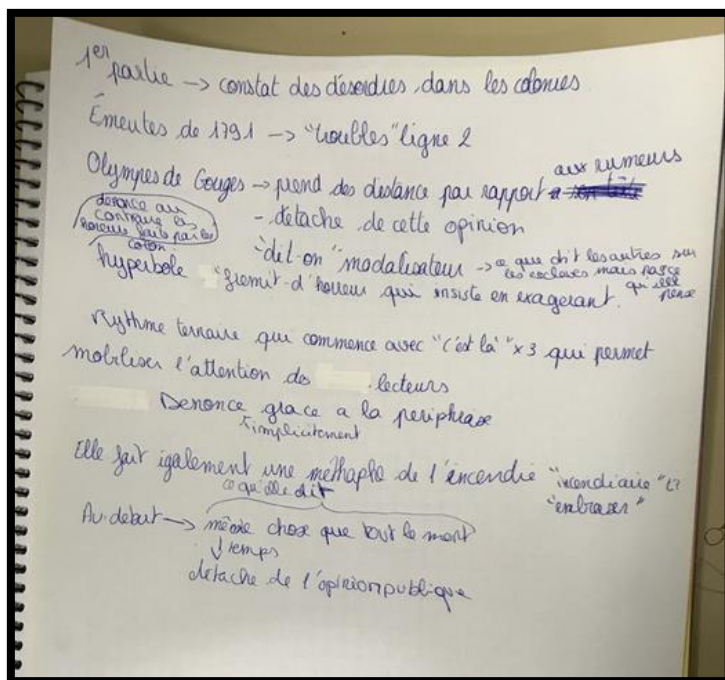 1er partie → constat des désordres dans les colonies
Émeutes de 1791 → "troubles" ligne 2
aux rumeurs
Olympes de Gouges → prend des distance par rapport a
- détache de cette opinion
dénonce au
contraire les
horreurs faits par les
colon
"dit-on" modalisateur → ce que dit les autres sur
les esclaves mais pas ce
qu'elle
pense
hyperbole "fremit d'horreur qui insiste en exagerant.
Rythme ternaire qui commence avec "c'est là" x3 qui permet
mobiliser l'attention des lecteurs
Denonce grace a la periphrase
implicitement
Elle fait également une méthaphe de l'incendie "incendiaire" L7
"embraser"
ce qu'elle dit
Au debut → même chose que tout le mont
↓ temps
détache de l'opinion publique